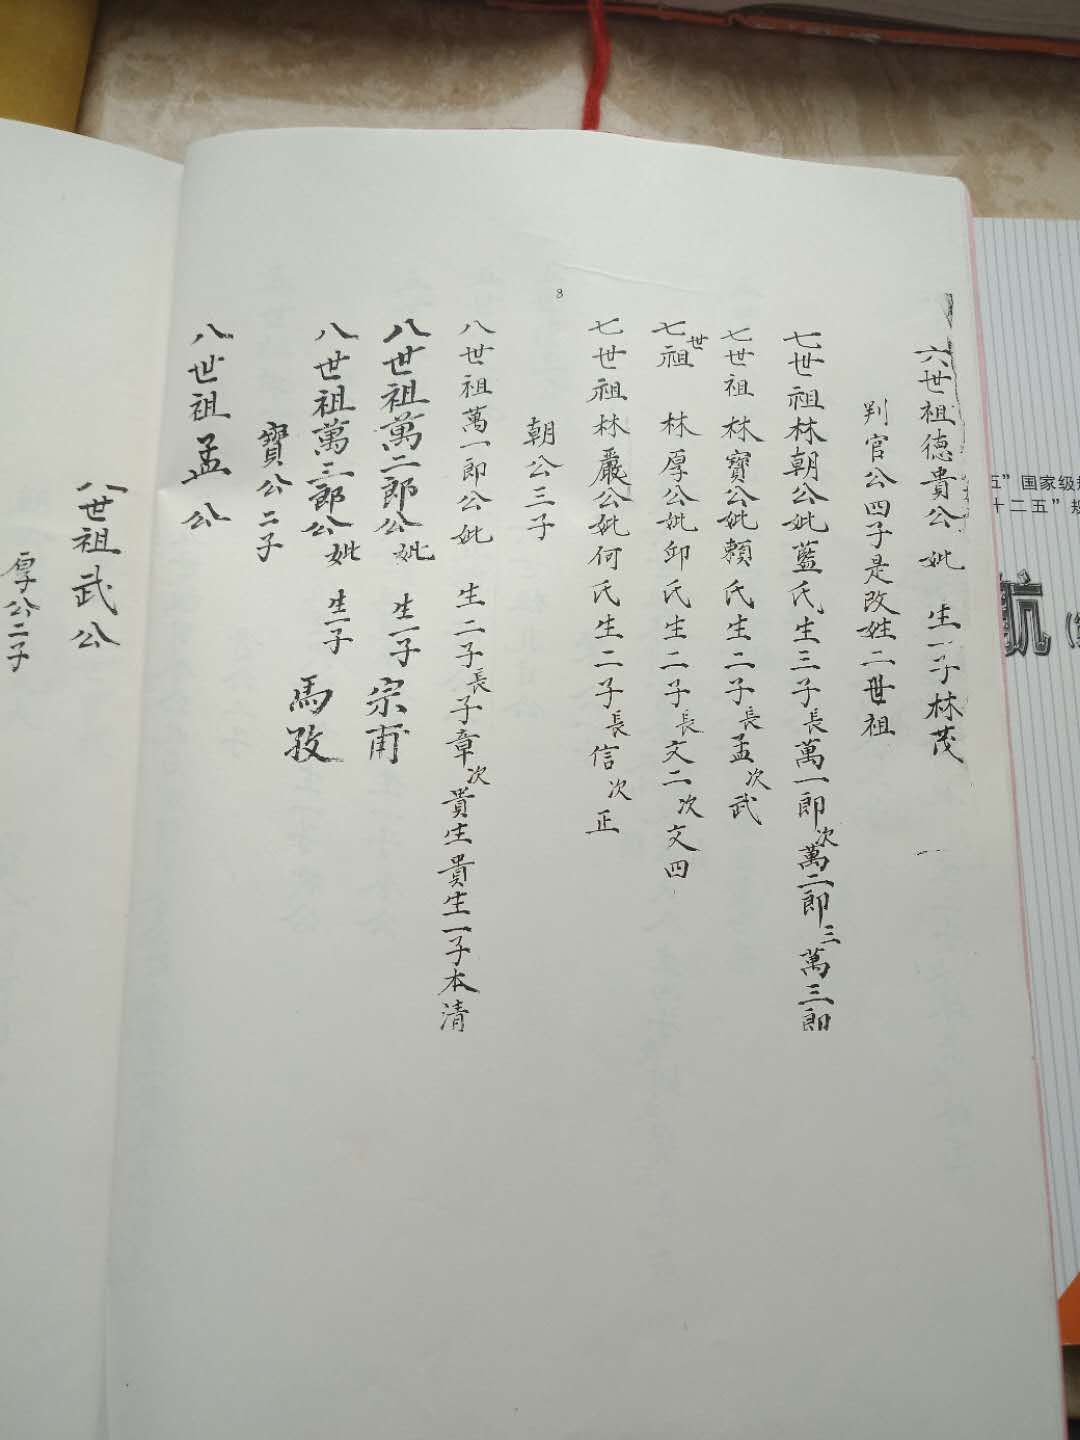 8
六世祖德貴公妣 生一子林茂
判官公四子是改姓二世祖
七世祖林朝公妣藍氏生三子長萬一郎次萬二郎三萬三郎
七世祖林寶公妣賴氏生二子長孟次武
七世祖林厚公妣邱氏生二子長文二次文四
七世祖林嚴公妣何氏生二子長信次正
朝公三子
八世祖萬一郎公妣 生二子長子章次貴生貴生一子本清
八世祖萬二郎公妣 生一子宗甫
八世祖萬三郎公妣 生一子馬孜
寶公二子
八世祖孟公
八世祖武公
厚公二子
五”国家级
十二五”规
航